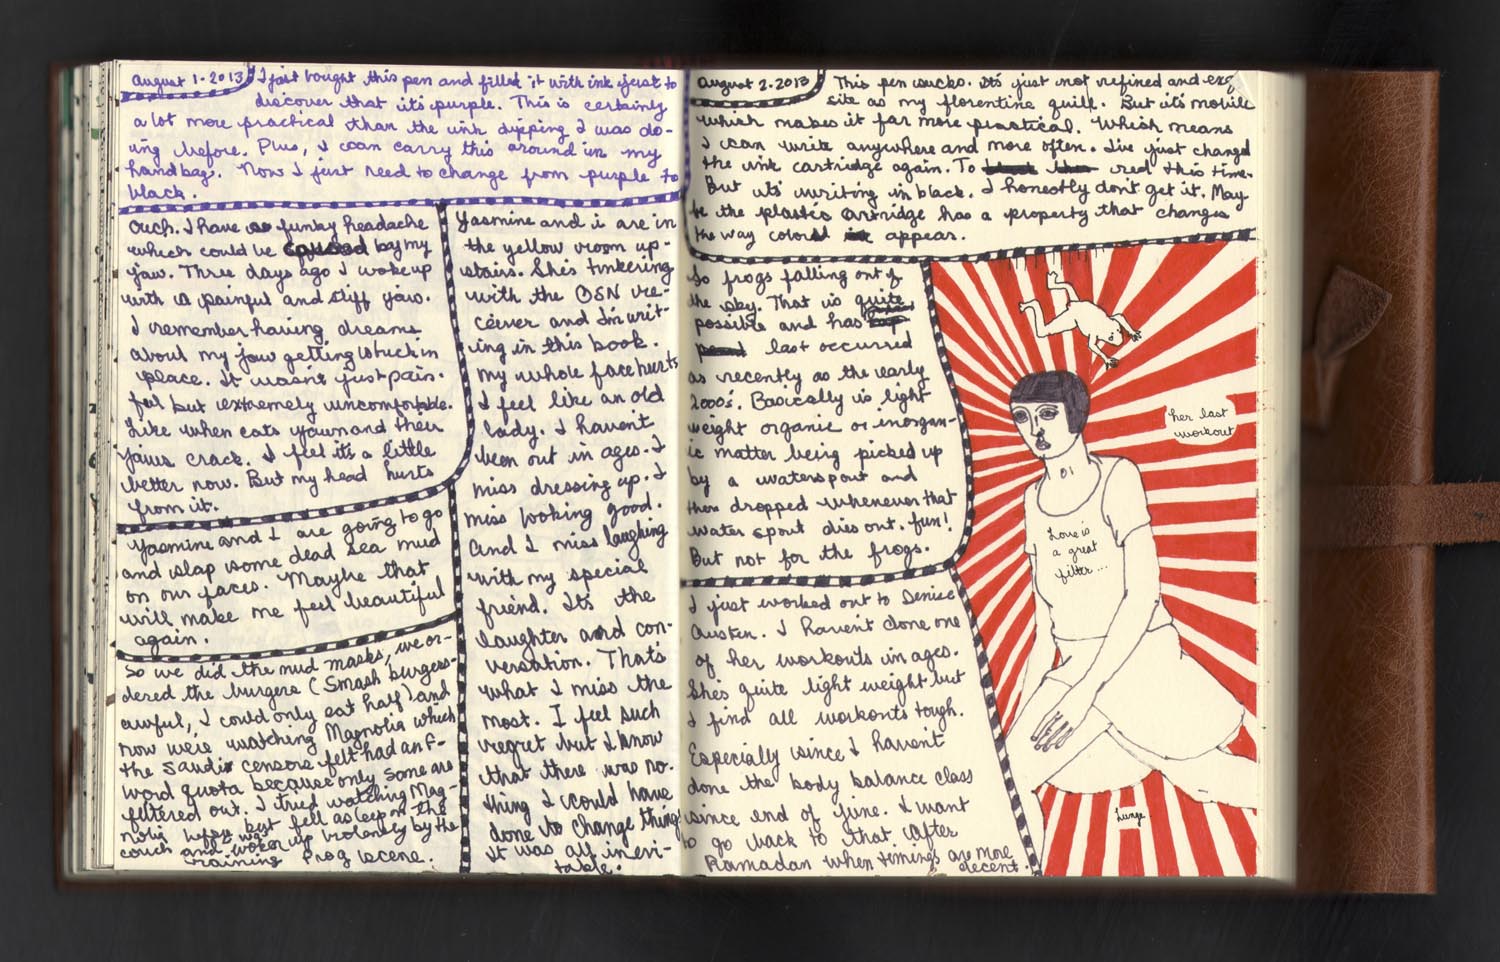 August 1.2013
I just bought this pen and filled it with ink just to
discover that it's purple. This is certainly
a lot more practical than the ink dipping I was do-
ing before. Plus, I can carry this around in my
handbag. Now I just need to change from purple to
black.
Ouch. I have a funky headache
which could be caused by my
jaw. Three days ago I woke up
with a painful and stiff jaw.
I remember having dreams
about my jaw getting stuck in
place. It wasn't just pain-
ful but extremely uncomfortable.
Like when cats yawn and their
jaws crack. I feel it's a little
better now. But my head hurts
from it.
Yasmine and I are going to go
and slap some dead sea mud
on our faces. Maybe that
will make me feel beautiful
again.
So we did the mud masks, we or-
dered the burgers (Smash burgers-
awful, I could only eat half) and
now we're watching Magnolia which
the Saudi censors felt had an F-
word quota because only some are
filtered out. I tried watching Mag-
nolia but fell asleep on the
couch and was woken up violently by the
raining frog scene.
Yasmine and i are in
the yellow room up-
stairs. She's tinkering
with the OSN re-
ceiver and I'm writ-
ing in this book.
My whole face hurts
I feel like an old
lady. I haven't
been out in ages. I
miss dressing up. I
miss looking good.
And I miss laughing
with my special
friend. It's the
laughter and con-
versation. That's
what I miss the
most. I feel such
regret but I know
that there was no-
thing I could have
done to change things
It was all inevi-
table.
August 2.2013
This pen sucks. It's just not refined and exq
site as my florentine quill. But it's mobile
which makes it far more practical. Which means
I can write anywhere and more often. I've just changed
the ink cartridge again. To red this time.
But it's writing in black. I honestly don't get it. May
be the plastic cartridge has a property that changes
the way colors appear.
So frogs falling out of
the sky. That is quite
possible and has
last occurred
as recently as the early
2000s'. Basically is light
weight organic or inorgan-
ic matter being picked up
by a waterspout and
then dropped whenever that
water spout dies out. Fun!
But not for the frogs.
I just worked out to Denise
Austen. I haven't done one
of her workouts in ages.
She's quite light weight but
I find all workouts tough.
Especially since I haven't
done the body balance class
since end of June. I want
to go back to that after
Ramadan when timings are more
decent.
her last
workout
Love is
a great
filter...
lunge.